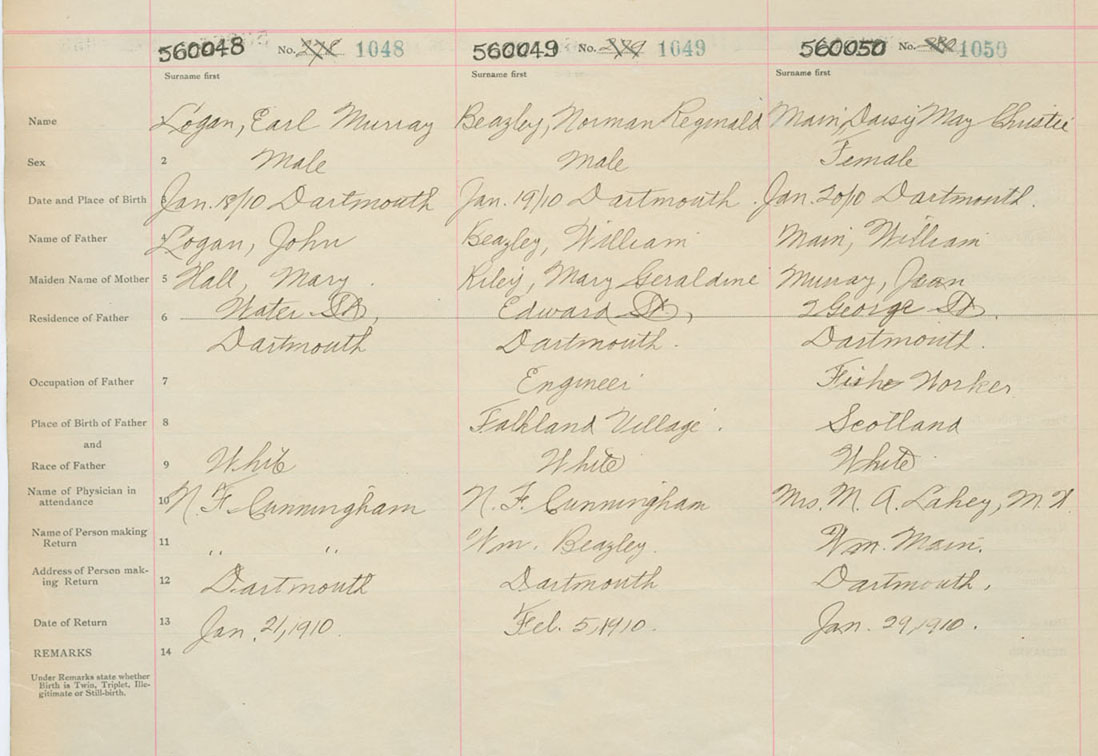 560048 No. 1048 560049 No. 1049 560050 No. 1050
Surname first Surname first Surname first
Name Logan, Earl Murray Beazley, Norman Reginald Main, Daisy May Christie
Sex 2 Male Male Female
Date and Place of Birth 3 Jan. 18/10 Dartmouth Jan. 19/10 Dartmouth. Jan. 20/10 Dartmouth.
Name of Father 4 Logan, John Beazley, William Main, William
Maiden Name of Mother 5 Hall, Mary. Riley, Mary Geraldine Murray, Jean
Residence of Father 6 Water St, Edward St, 2 George St.
Dartmouth Dartmouth. Dartmouth.
Occupation of Father 7 Engineer Fish Worker
Place of Birth of Father 8 Falkland Village. Scotland
and
Race of Father 9 White White White
Name of Physician in
attendance 10 N. F. Cunningham N. F. Cunningham Mrs. M. A. Lahey, M.
Name of Person making
Return 11 " " Wm. Beazley. Wm. Main.
Address of Person mak-
ing Return 12 Dartmouth Dartmouth Dartmouth.
Date of Return 13 Jan. 21, 1910. Feb. 5, 1910. Jan. 29, 1910.
REMARKS 14
Under Remarks state whether
Birth is Twin, Triplet, Ille-
gitimate or Still-birth.